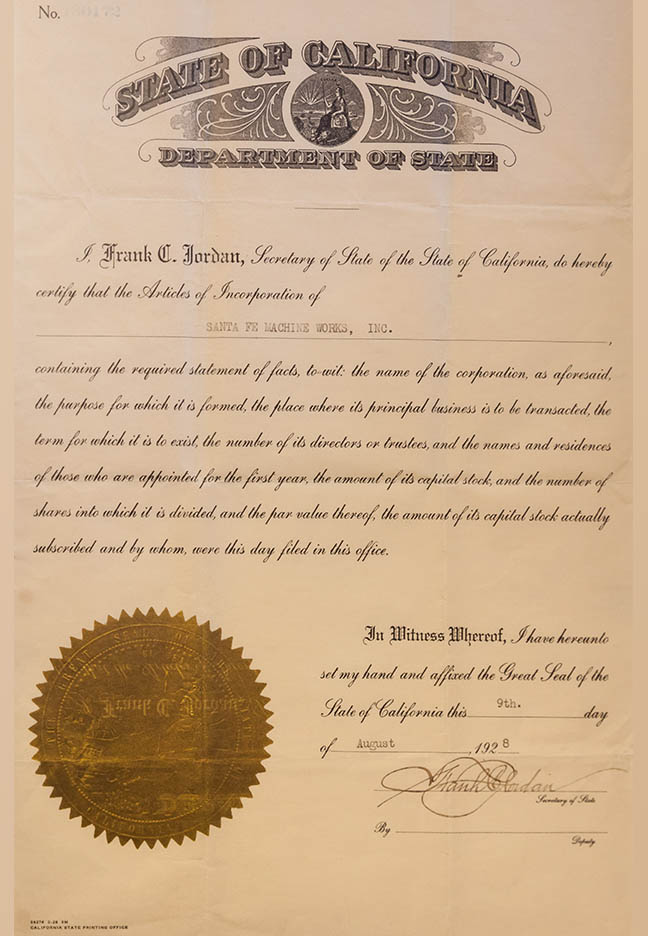 No.
STATE OF CALIFORNIA
DEPARTMENT OF STATE
I, Frank C. Jordan, Secretary of State of the State of California, do hereby
certify that the Articles of Incorporation of
SANTA FE MACHINE WORKS, INC.,
containing the required statement of facts, to-wit: the name of the corporation, as aforesaid,
the purpose for which it is formed, the place where its principal business is to be transacted, the
term for which it is to exist, the number of its directors or trustees, and the names and residences
of those who are appointed for the first year, the amount of its capital stock, and the number of
shares into which it is divided, and the par value thereof, the amount of its capital stock actually
subscribed and by whom, were this day filed in this office.
In Witness Whereof, I have hereunto
set my hand and affixed the Great Seal of the
State of California this 9th. day
of August, 1928
Frank C Jordan
Secretary of State
By
Deputy
CALIFORNIA STATE PRINTING OFFICE